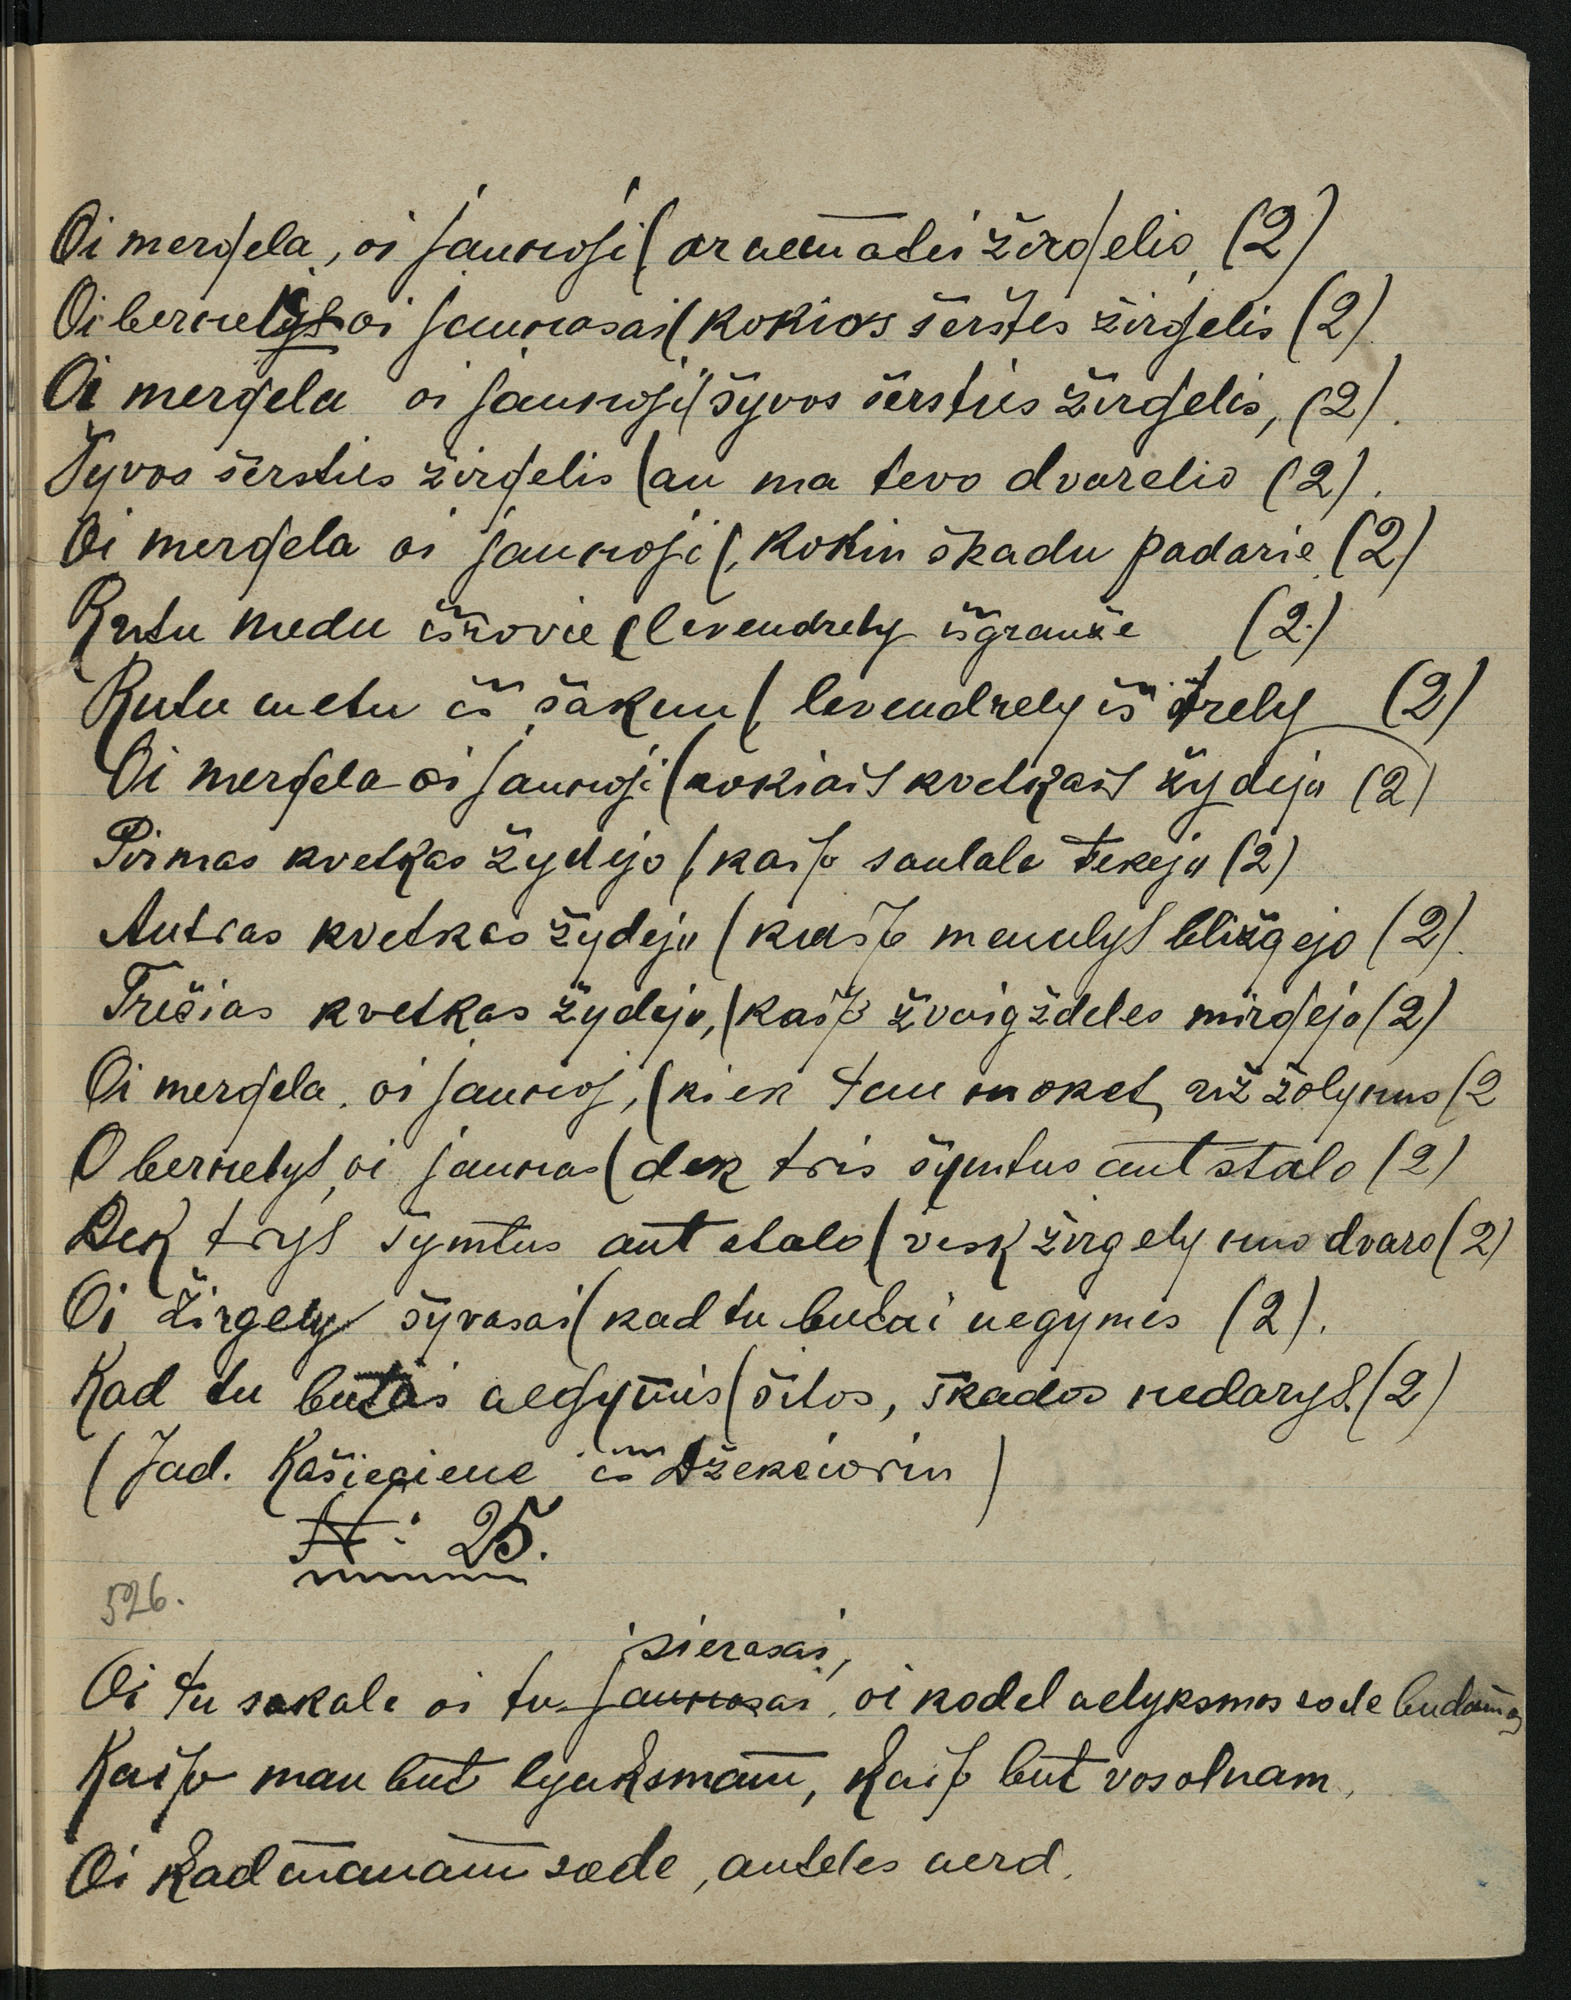 Oi mergela, oi jaunoji (ar nematei žirgelio (2)
Oi bernelys oi jaunasai (kokios šerstes žirgelis (2)
Oi mergela oi jaunoji (šyvos šersties žirgelis, (2).
Šyvos šersties žirgelis (an ma tevo dvarelio (2).
Oi mergela oi jaunoji (, kokiu škadu padarie (2)
Rutu medu išrovie (levendrely išgrauže (2.)
Rutu metu iš šaknu (levendrely iš trely (2)
Oi mergela oi jaunoji (kokiais kvetkais žydeja (2)
Pirmas kvetkas žydejo (kaip saulale tekeja (2)
Antras kvetkas žydeja (kaip menulys bližgejo (2).
Trečias kvetkas žydejo, (kaip žvaigždeles mirgejo (2)
Oi mergela, oi jaunoj, (kiek tau moket už žolynus (2
O bernelys, oi jaunas (dek tris šymtus ant stalo (2)
Dek trys šymtus ant stalo (vesk žirgely nuo dvaro (2)
Oi žirgely šyvasai (kad tu butai negymis (2).
Kad tu butai negymis (šitos, škados nedarys. (2)
(Jad. Kašiegiene iš Džekciorin)
N: 25.
526.
sierasai,
Oi tu sakale oi tu jaunasai, oi kodel nelyksmos sode budamas
Kaip man but lynksmam, kaip but vosolnam,
Oi kad manam sode, anteles nerd.